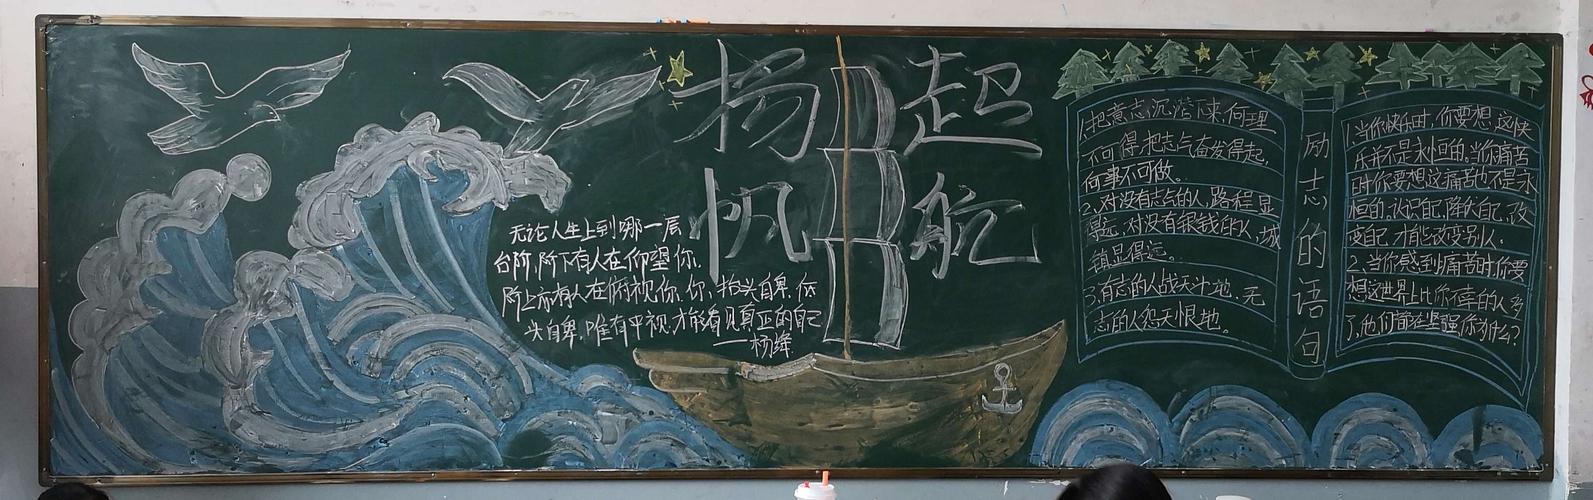 扬帆
起航
无论人生上到哪一层
台阶,阶下有人在仰望你,
阶上亦有人在俯视你.你,抬头自卑.低
头自卑.唯有平视.才能看见真正的自己
——杨绛
1.把意志沉潜下来,何理
不可得,把志气奋发得起,
何事不可做。
2.对没有志气的人,路程显
得远.对没有银钱的人,城
镇显得远。
3.有志的人战天斗地.无
志的人怨天恨地。
励志的语句
1.当你快乐时,你要想,这快
乐并不是永恒的.当你痛苦
时你要想这痛苦也不是永
恒的.认识自己,降伏自己,改
变自己,才能改变别人.
2.当你感到痛苦时你要
想这世界上比你不幸的人多
了,他们都在坚强你为什么?